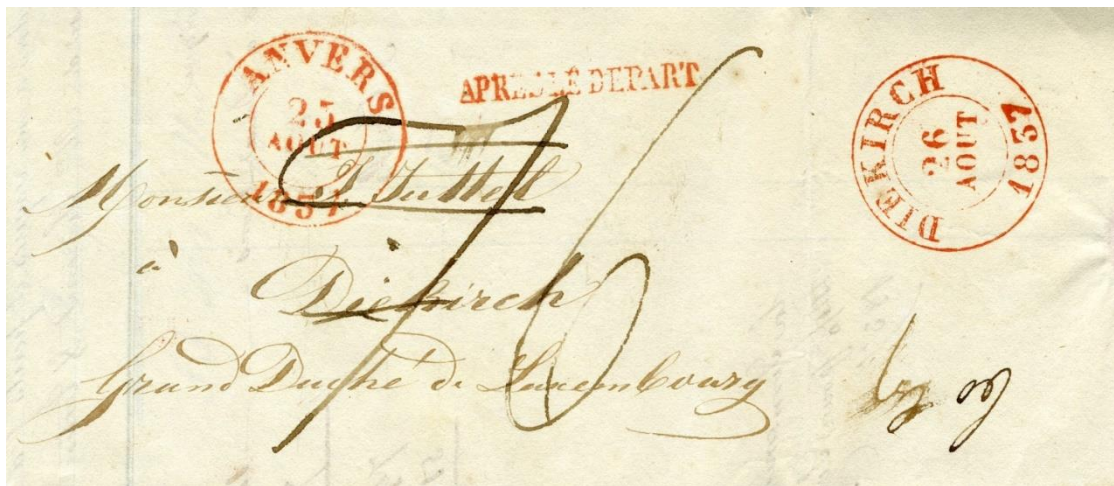 ANVERS
25
AOUT
1837
APRES LE DEPART
DIEKIRCH
26
AOUT
1837
Monsieur
à
Diekirch
Grand Duché de Luxembourg